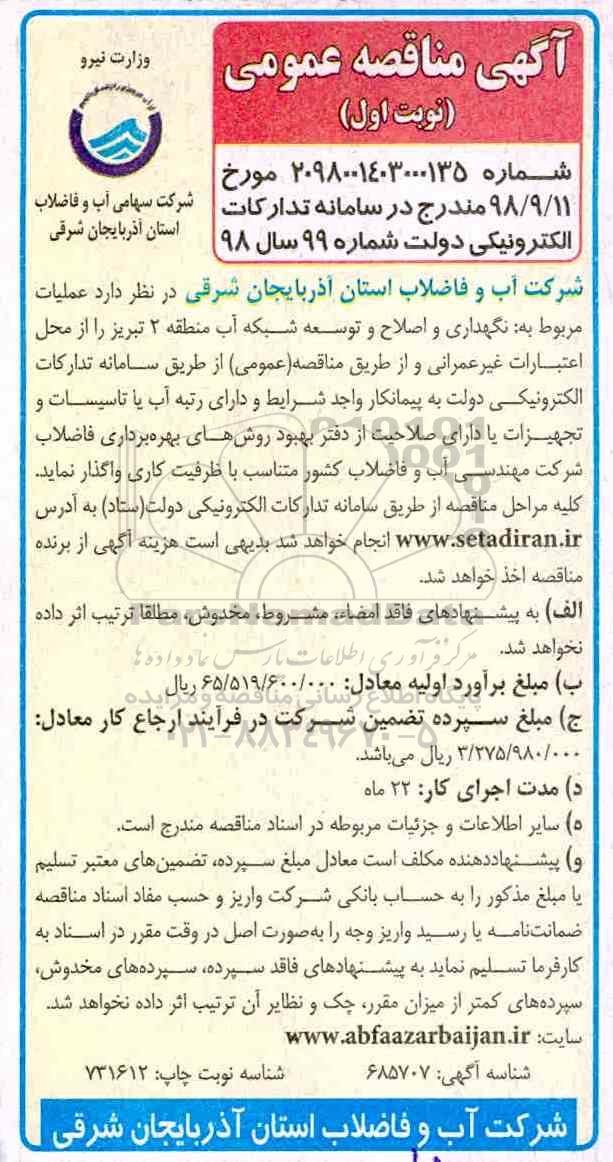 آگهی مناقصه عمومی
(نوبت اول)
وزارت نیرو
شرکت سهامی آب و فاضلاب
استان آذربایجان شرقی
شماره ۲۰۹۸۰۰۱۴۰۳۰۰۰۱۳۵ مورخ
۹۸/۹/۱۱ مندرج در سامانه تدارکات
الکترونیکی دولت شماره ۹۹ سال ۹۸
شرکت آب و فاضلاب استان آذربایجان شرقی در نظر دارد عملیات
مربوط به: نگهداری و اصلاح و توسعه شبکه آب منطقه ۲ تبریز را از محل
اعتبارات غیرعمرانی و از طریق مناقصه(عمومی) از طریق سامانه تدارکات
الکترونیکی دولت به پیمانکار واجد شرایط و دارای رتبه آب یا تاسیسات و
تجهیزات یا دارای صلاحیت از دفتر بهبود روش‌های بهره‌برداری فاضلاب
شرکت مهندسی آب و فاضلاب کشور متناسب با ظرفیت کاری واگذار نماید.
کلیه مراحل مناقصه از طریق سامانه تدارکات الکترونیکی دولت(ستاد) به آدرس
www.setadiran.ir انجام خواهد شد بدیهی است هزینه آگهی از برنده
مناقصه اخذ خواهد شد.
الف) به پیشنهادهای فاقد امضاء، مشروط، مخدوش، مطلقا ترتیب اثر داده
نخواهد شد.
ب) مبلغ برآورد اولیه معادل: ۶۵/۵۱۹/۶۰۰/۰۰۰ ریال
ج) مبلغ سپرده تضمین شرکت در فرآیند ارجاع کار معادل:
۳/۲۷۵/۹۸۰/۰۰۰ ریال می‌باشد.
د) مدت اجرای کار: ۲۲ ماه
ه) سایر اطلاعات و جزئیات مربوطه در اسناد مناقصه مندرج است.
و) پیشنهاددهنده مکلف است معادل مبلغ سپرده، تضمین‌های معتبر تسلیم
یا مبلغ مذکور را به حساب بانکی شرکت واریز و حسب مفاد اسناد مناقصه
ضمانت‌نامه یا رسید واریز وجه را به‌صورت اصل در وقت مقرر در اسناد به
کارفرما تسلیم نماید به پیشنهادهای فاقد سپرده، سپرده‌های مخدوش،
سپرده‌های کمتر از میزان مقرر، چک و نظایر آن ترتیب اثر داده نخواهد شد.
سایت: www.abfaazarbaijan.ir
شناسه آگهی: ۶۸۵۷۰۷ شناسه نوبت چاپ: ۷۳۱۶۱۲
شرکت آب و فاضلاب استان آذربایجان شرقی
ParsNamadData
مرکز فرآوری اطلاعات پارس نماد داده ها
پایگاه اطلاع رسانی مناقصه و مزایده
۰۲۱-۸۸۳۴۹۶۷۰-۵